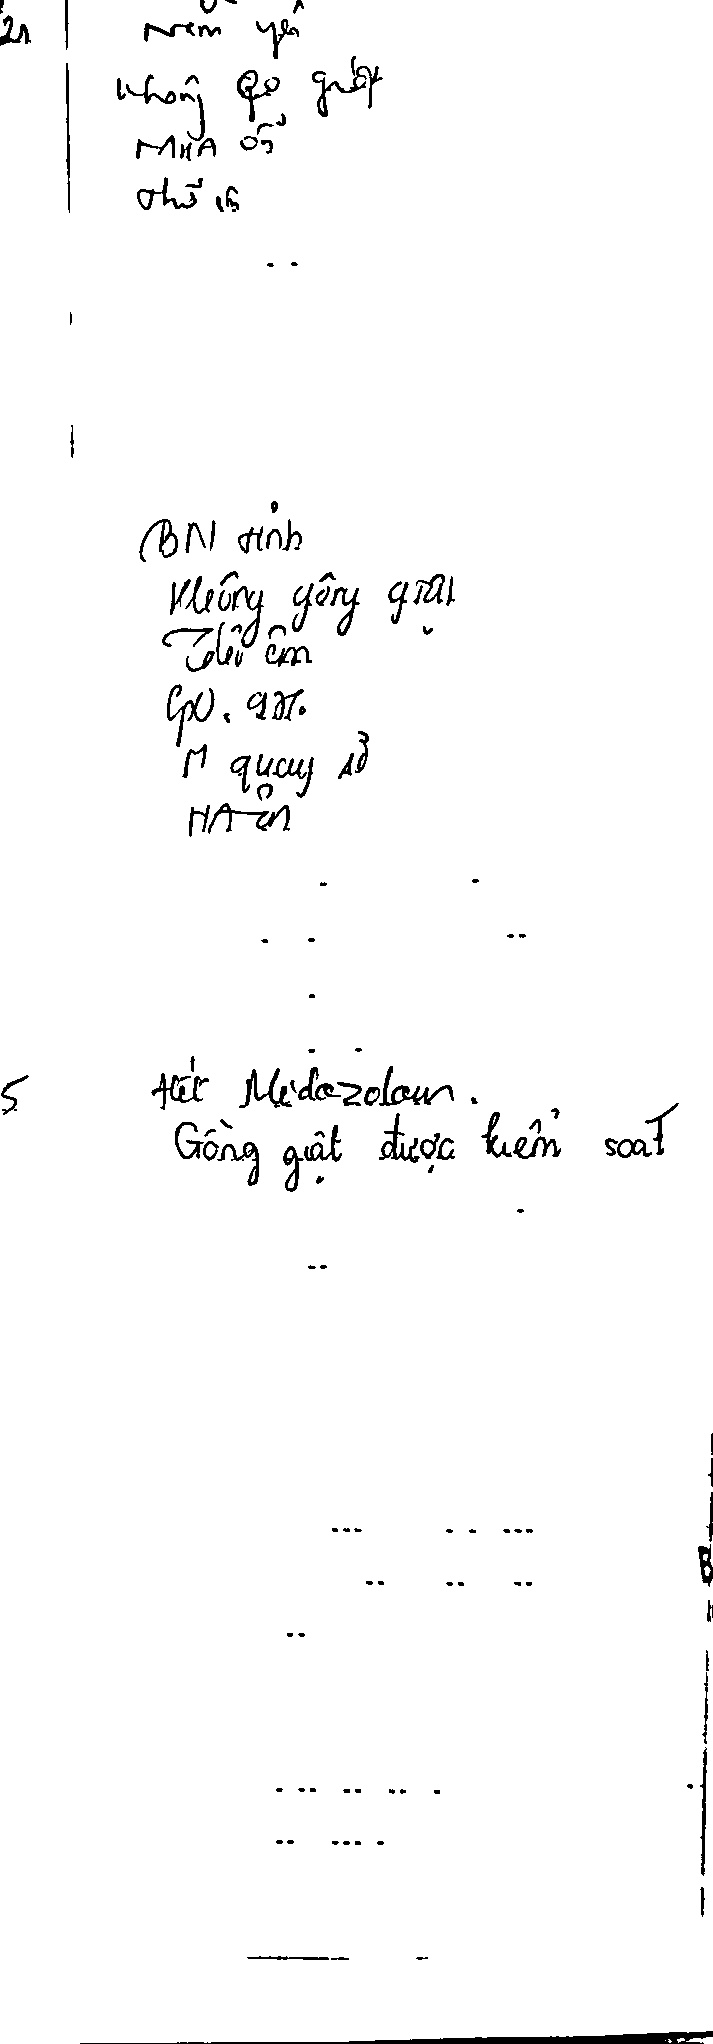 Nằm yên
Không co giật
M HA ổn
thở
BN tỉnh
Không gồng giật
Thở êm
M quay rõ
HA ổn
5 Hết Midazolam.
Gồng giật được kiểm soát